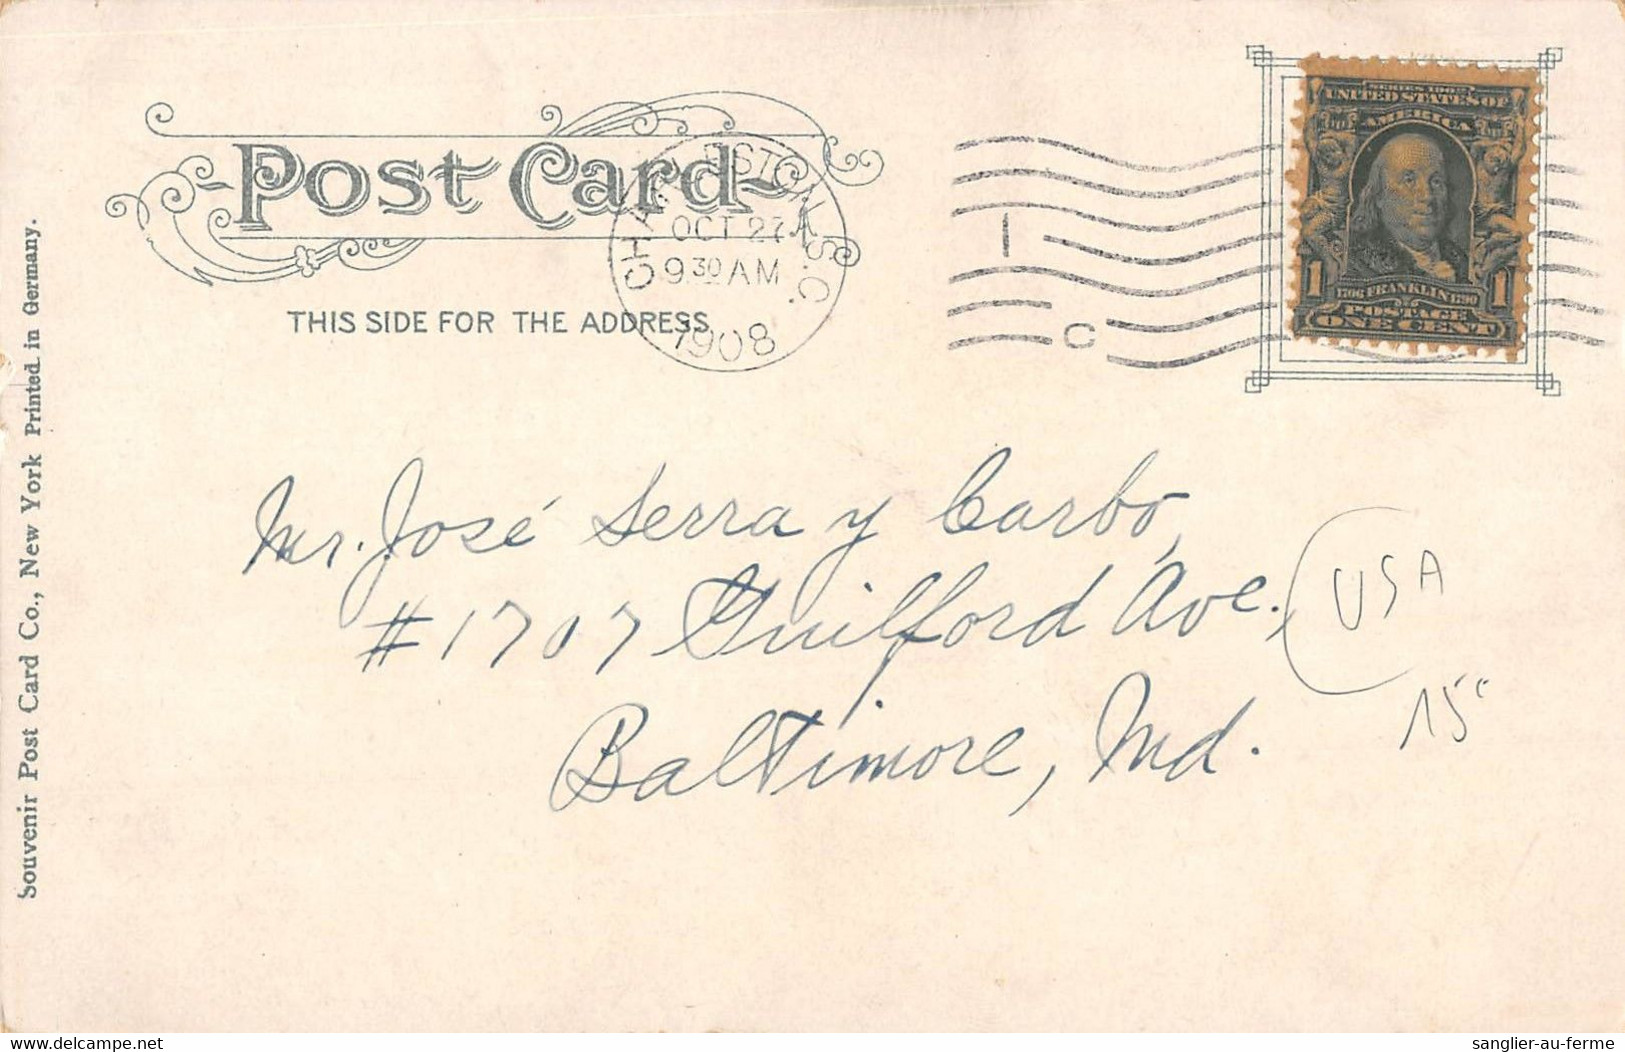 Post Card
THIS SIDE FOR THE ADDRESS
CHARLESTON, S.C.
OCT 27
9 30 AM
1908
1
C
SERIES 1902
UNITED STATES OF
AMERICA
1706 FRANKLIN 1790
1 POSTAGE 1
ONE CENT
Mr. José Serra y Carbo,
#1707 Guilford Ave.,
Baltimore, Md.
USA
15
Souvenir Post Card Co., New York Printed in Germany.
delcampe.net
sanglier-au-ferme